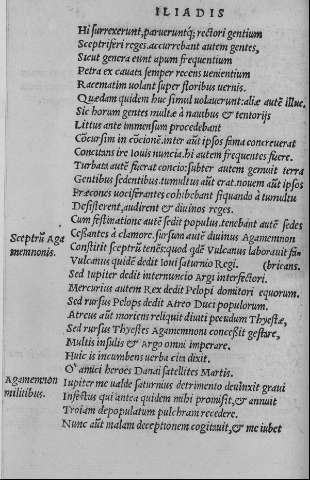 ILIADIS
Hi surrexerunt, parueruntq́; rectori gentium
Sceptriferi reges. accurrebant autem gentes,
Sicut genera eunt apum frequentium
Petra ex cauata semper recens uenientium
Racematim uolant super floribus uernis.
Quædam quidem huc simul uolauerunt: aliæ autẽ illuc.
Sic horum gentes multæ à nauibus & tentorijs
Littus ante immensum procedebant
Cõcursim in cõcionẽ. inter aũt ipsos fama concreuerat
Concitans ire Iouis nuncia. hi autem frequentes fuere.
Turbata autẽ fuerat concio: subter autem gemuit terra
Gentibus sedentibus. tumultus aũt erat. nouem aũt ipsos
Præcones uociferantes cohibebant siquando à tumultu
Desisterent, audirent & diuinos reges.
Cum festinatione autẽ sedit populus. tenebant autẽ sedes
Cessantes à clamore. sursum autẽ diuinus Agamemnon
Sceptrũ Aga
memnonis.
Constitit sceptrũ tenẽs: quod qdẽ Vulcanus laborauit fa-
Vulcanus quidẽ dedit Ioui Saturnio Regi. (bricans.
Sed Iupiter dedit internuncio Argi interfectori.
Mercurius autem Rex dedit Pelopi domitori equorum.
Sed rursus Pelops dedit Atreo Duci populorum.
Atreus aũt moriens reliquit diuiti pecudum Thyestæ,
Sed rursus Thyestes Agamemnoni concessit gestare,
Multis insulis & Argo omni imperare.
Huic is incumbens uerba cin dixit.
O' amici heroës Danai satellites Martis.
Agamemnon
militibus.
Iupiter me ualde Saturnius detrimento deuinxit graui
Infestus qui antea quidem mihi promisit, & annuit
Troiam depopulatum pulchram recedere.
Nunc aũt malam deceptionem cogitauit, & me iubet